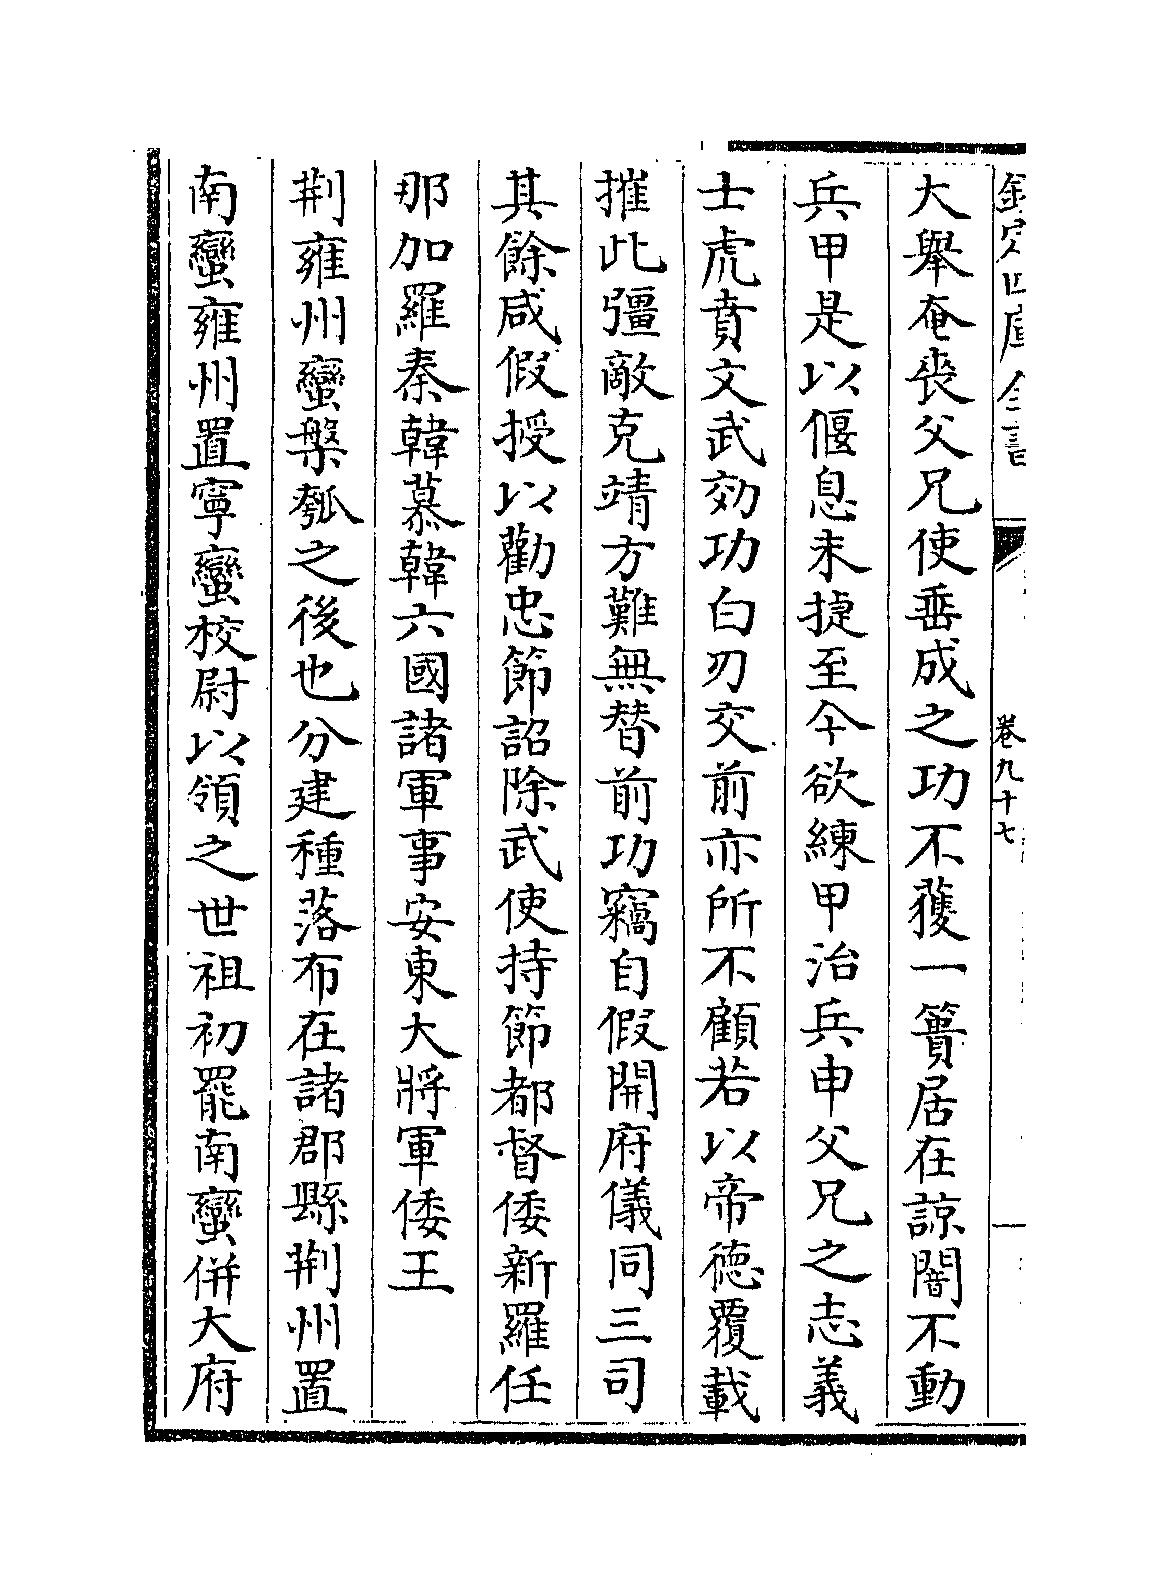 欽定四庫全書
卷九十七
大舉奄喪父兄使垂成之功不獲一簣居在諒闇不動
兵甲是以偃息未捷至今欲練甲治兵申父兄之志義
士虎賁文武効功白刃交前亦所不顧若以帝德覆載
摧此彊敵克靖方難無替前功竊自假開府儀同三司
其餘咸假授以勸忠節詔除武使持節都督倭新羅任
那加羅秦韓慕韓六國諸軍事安東大將軍倭王
荆雍州蠻槃瓠之後也分建種落布在諸郡縣荆州置
南蠻雍州置寧蠻校尉以領之世祖初罷南蠻併大府